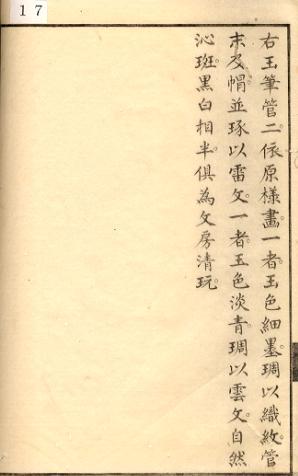 17
右玉筆管二依原樣畫一者玉色細墨琱以織紋管
末及㡌並琢以雷文一者玉色淡青琱以雲文自然
沁斑黑白相半俱為文房清玩